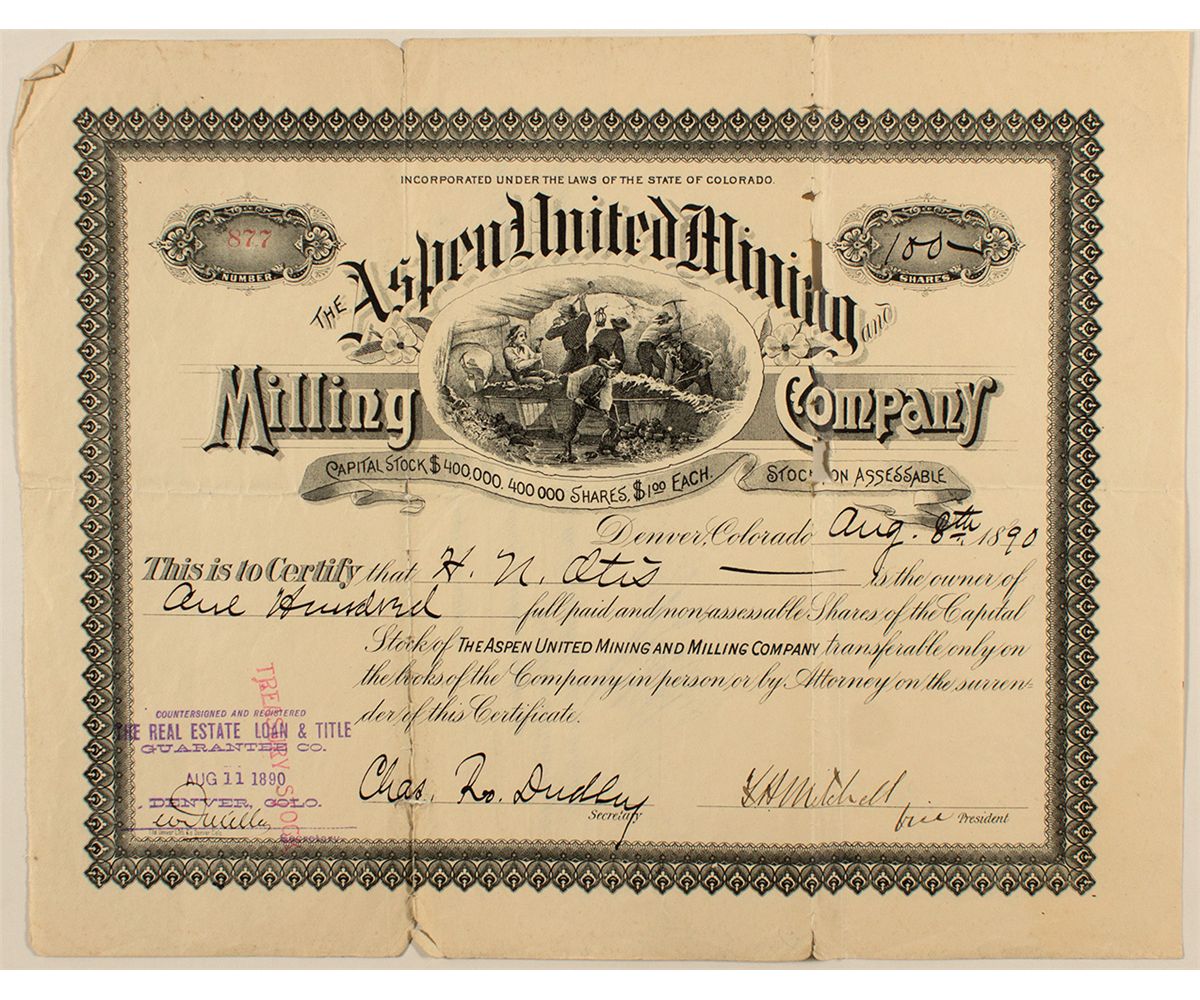 INCORPORATED UNDER THE LAWS OF THE STATE OF COLORADO.
877
NUMBER
100
SHARES
THE Aspen United Mining and
Milling Company
CAPITAL STOCK $400,000. 400 000 SHARES, $1.00 EACH.
STOCK ON ASSESSABLE
Denver, Colorado Aug. 8th 1890
This is to Certify that H. N. Otis is the owner of
One Hundred full paid and non-assessable Shares of the Capital
Stock of THE ASPEN UNITED MINING AND MILLING COMPANY transferable only on
the books of the Company in person or by Attorney on the surren-
der of this Certificate.
TREASURY STOCK
COUNTERSIGNED AND REGISTERED
THE REAL ESTATE LOAN & TITLE
GUARANTEE CO.
AUG 11 1890
DENVER, COLO.
Secretary
Chas. Dudley
Secretary
Mitchell
Vice President